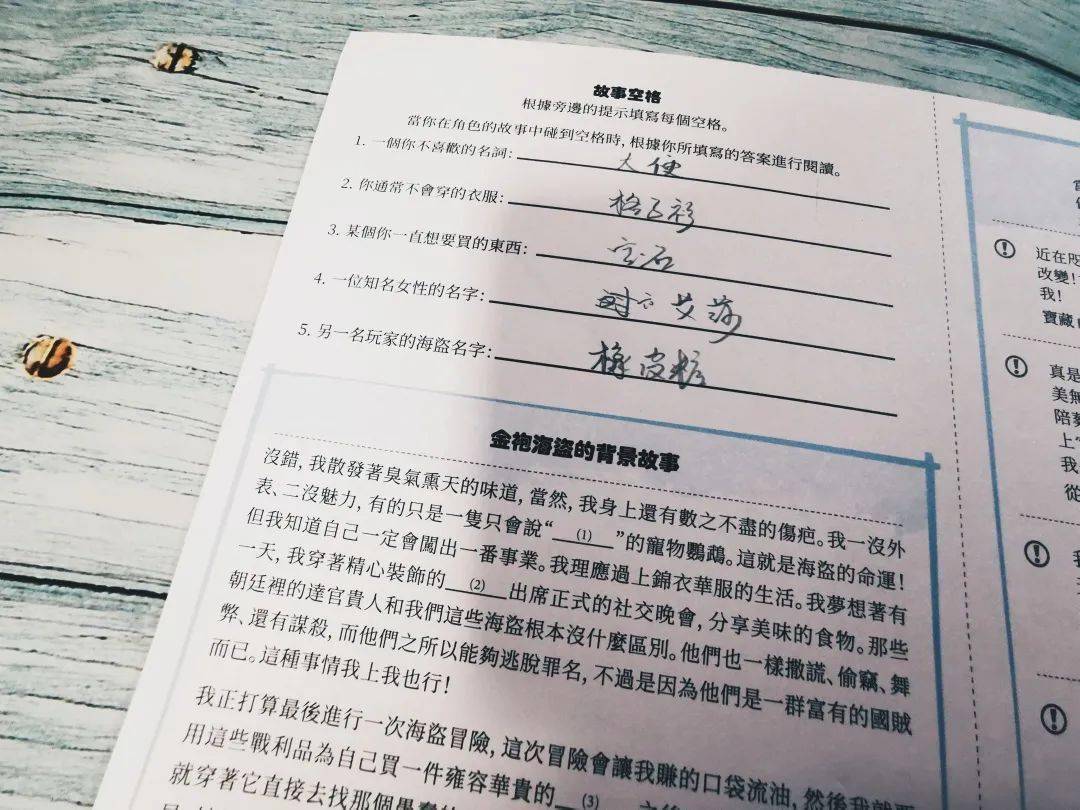 故事空格
根據旁邊的提示填寫每個空格。
當你在角色的故事中碰到空格時, 根據你所填寫的答案進行閱讀。
1. 一個你不喜歡的名詞: 大便
2. 你通常不會穿的衣服: 格子衫
3. 某個你一直想要買的東西: 宝石
4. 一位知名女性的名字: 艾莎
5. 另一名玩家的海盜名字: 橡皮糖
金袍海盜的背景故事
沒錯, 我散發著臭氣熏天的味道, 當然, 我身上還有數之不盡的傷疤。我一沒外
表、二沒魅力, 有的只是一隻只會說“ (1) ”的寵物鸚鵡。這就是海盜的命運!
但我知道自己一定會闖出一番事業。我理應過上錦衣華服的生活。我夢想著有
一天, 我穿著精心裝飾的 (2) 出席正式的社交晚會, 分享美味的食物。那些
朝廷裡的達官貴人和我們這些海盜根本沒什麼區別。他們也一樣撒謊、偷竊、舞
弊、還有謀殺, 而他們之所以能夠逃脫罪名, 不過是因為他們是一群富有的國賊
而已。這種事情我上我也行!
我正打算最後進行一次海盜冒險, 這次冒險會讓我賺的口袋流油, 然後我就要
用這些戰利品為自己買一件雍容華貴的 (3)
就穿著它直接去找那個愚蠢的
近在咫
改變!
我!
寶藏
真是
美無
陪
上
我
從